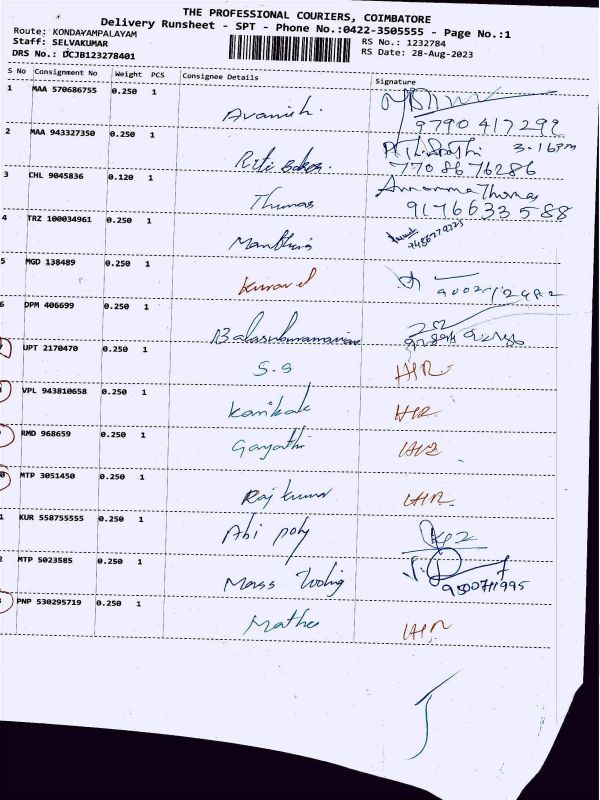 THE PROFESSIONAL COURIERS, COIMBATORE
Delivery Runsheet - SPT - Phone No.:0422-3505555 - Page No.:1
Route: KONDAYAMPALAYAM
Staff: SELVAKUMAR
DRS No.: DCJB123278401
RS No.: 1232784
RS Date: 28-Aug-2023
S No Consignment No Weight PCS Consignee Details Signature
1 MAA 570686755 0.250 1 Avanish.
9790417299
2 MAA 943327350 0.250 1 3.16pm
7708676286
3 CHL 9045836 0.120 1 Thumas Annamma Thomas
9176633588
4 TRZ 100034961 0.250 1
5 MGD 138489 0.250 1
6 DPM 406699 0.250 1 Balasubramanian
UPT 2170470 0.250 1 S.S
VPL 943810658 0.250 1
RMD 968659 0.250 1 Gayathi
0 MTP 3051450 0.250 1 Raj kumar
1 KUR 558755555 0.250 1 Abi poly
2 MTP 5023585 0.250 1 Mass
9500711995
3 PNP 530295719 0.250 1 Mathu